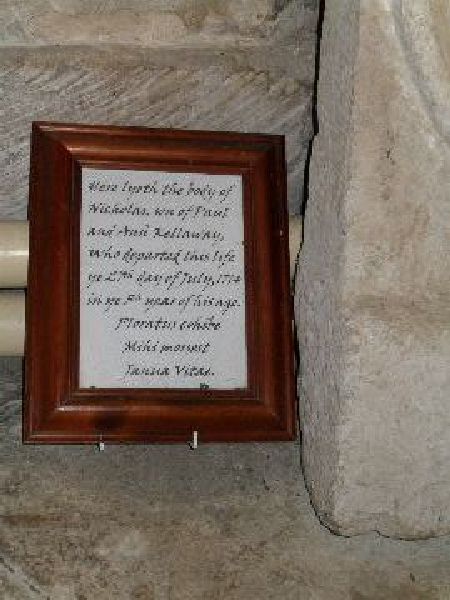 Here lyeth the body of
Nicholas, son of Paul
and Ann Kellaway,
Who departed this life
ye 27th day of July, 1774
in ye 5th year of his age.
Ploratus cohibe
Mihi
Janua Vitae.